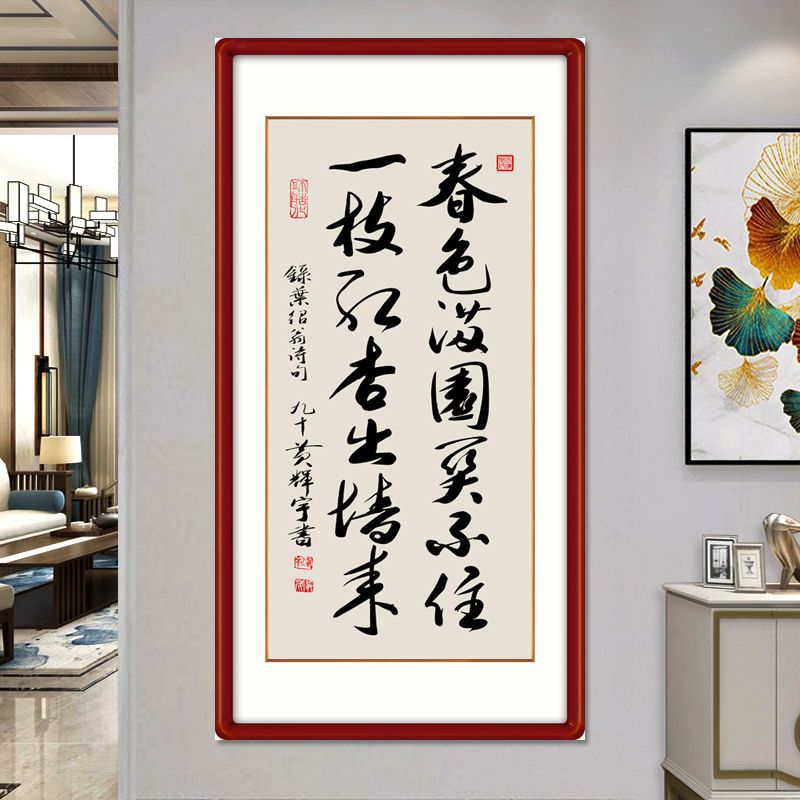 春色滿園関不住
一枝紅杏出墻来
錄葉紹翁詩句 九十黄輝宇書